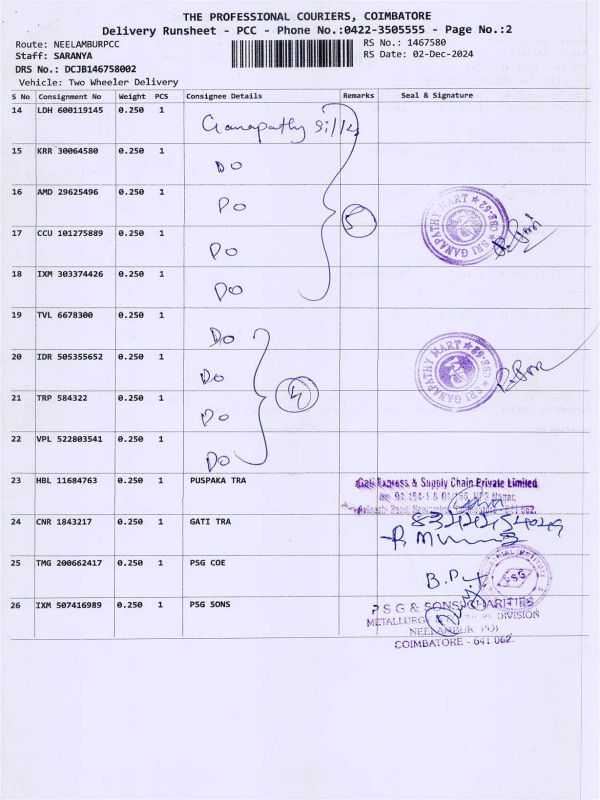 THE PROFESSIONAL COURIERS, COIMBATORE
Delivery Runsheet - PCC - Phone No.:0422-3505555 - Page No.:2
Route: NEELAMBURPCC
RS No.: 1467580
Staff: SARANYA
RS Date: 02-Dec-2024
DRS No.: DCJB146758002
Vehicle: Two Wheeler Delivery
S No Consignment No Weight PCS Consignee Details Remarks Seal & Signature
14 LDH 600119145 0.250 1 Ganapathy Silks
15 KRR 30064580 0.250 1 DO
16 AMD 29625496 0.250 1 DO
5
SRI GANAPATHY MART
17 CCU 101275889 0.250 1 DO
18 IXM 303374426 0.250 1 DO
19 TVL 6678300 0.250 1 DO
20 IDR 505355652 0.250 1 DO
SRI GANAPATHY MART
21 TRP 584322 0.250 1 DO
22 VPL 522803541 0.250 1 DO
23 HBL 11684763 0.250 1 PUSPAKA TRA
Gati Express & Supply Chain Private Limited
24 CNR 1843217 0.250 1 GATI TRA
25 TMG 200662417 0.250 1 PSG COE
PSG
26 IXM 507416989 0.250 1 PSG SONS
P S G & SONS CHARITIES
METALLURGY DIVISION
NEELAMBUR (PO)
COIMBATORE - 641 062.